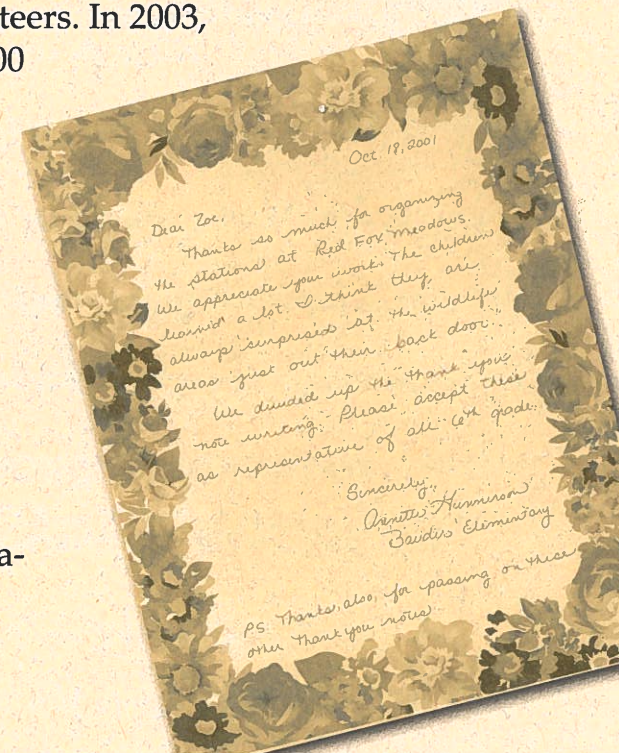 teers. In 2003,
00
a-
Oct 18, 2001
Dear Zoe,
Thanks so much for organizing
the stations at Red Fox Meadows.
We appreciate your work. The children
learned a lot & I think they are
always surprised at the wildlife
areas just out their back door.
We divided up the thank you
note writing. Please accept these
as representative of all 6th grade.
Sincerely,
Annette
Bauder Elementary
PS. Thanks, also, for passing on these
other thank you notes.